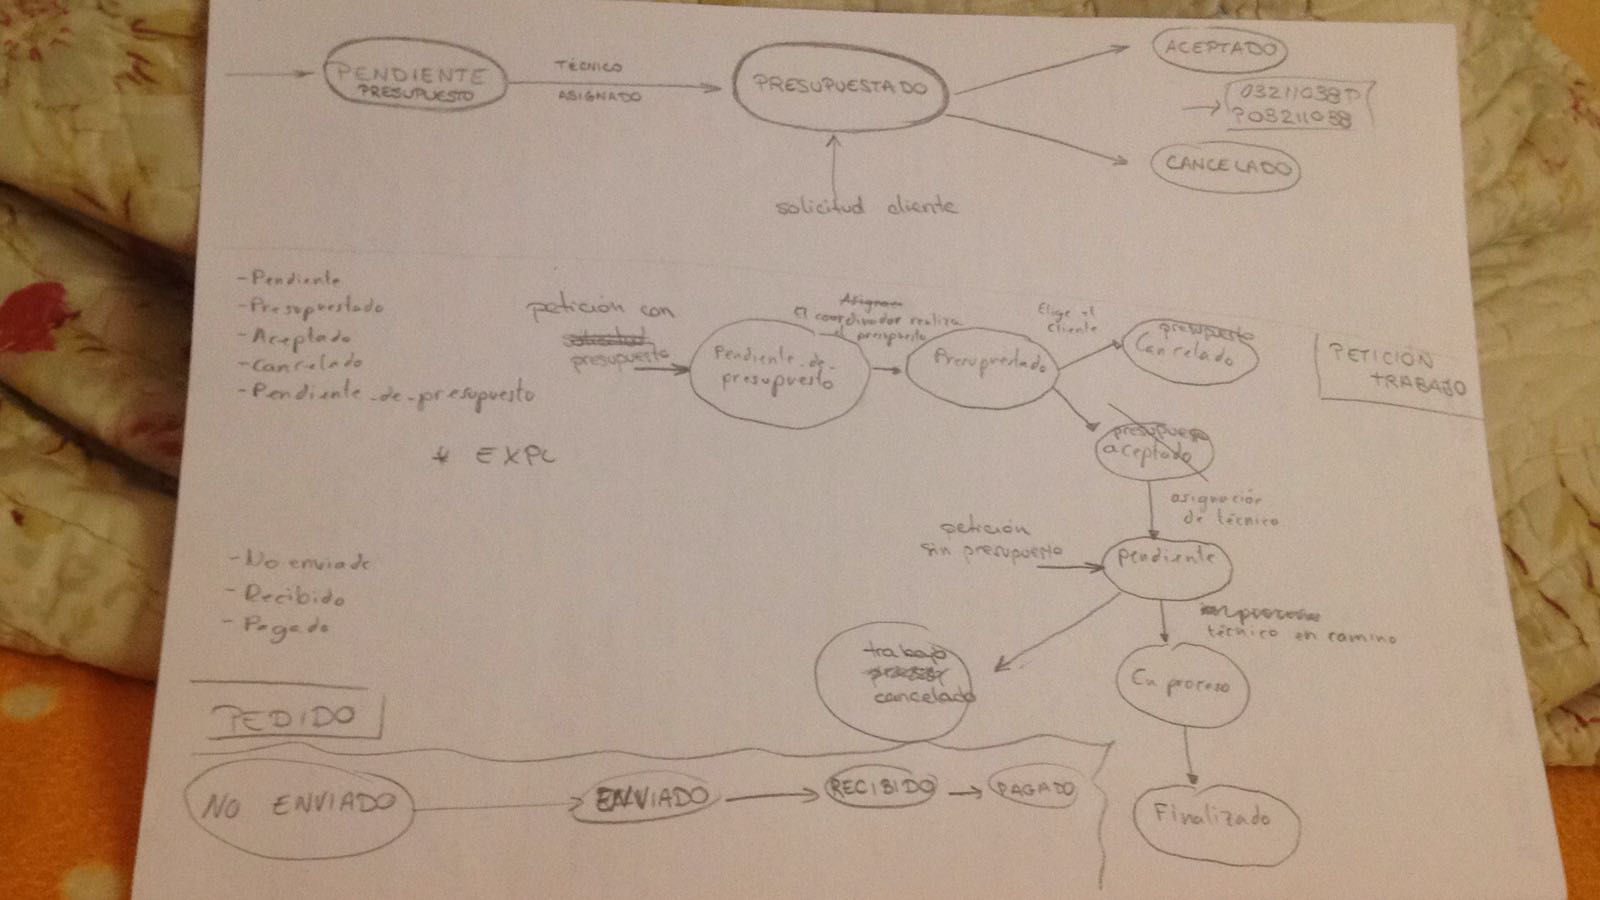 PENDIENTE
PRESUPUESTO
TÉCNICO
ASIGNADO
PRESUPUESTADO
ACEPTADO
03211038P
P03211038
CANCELADO
solicitud cliente
- Pendiente
- Presupuestado
- Aceptado
- Cancelado
- Pendiente_de_presupuesto
* EXPL
petición con
presupuesto
Pendiente_de_
presupuesto
Asignam
El coordinador realiza
el presupuesto
Presupuestado
Elige el
cliente
presupuesto
Cancelado
PETICIÓN
TRABAJO
presupuesto
aceptado
asignación
de técnico
petición
sin presupuesto
pendiente
técnico en camino
trabajo
cancelado
En proceso
Finalizado
- No enviado
- Recibido
- Pagado
PEDIDO
NO ENVIADO
ENVIADO
RECIBIDO
PAGADO